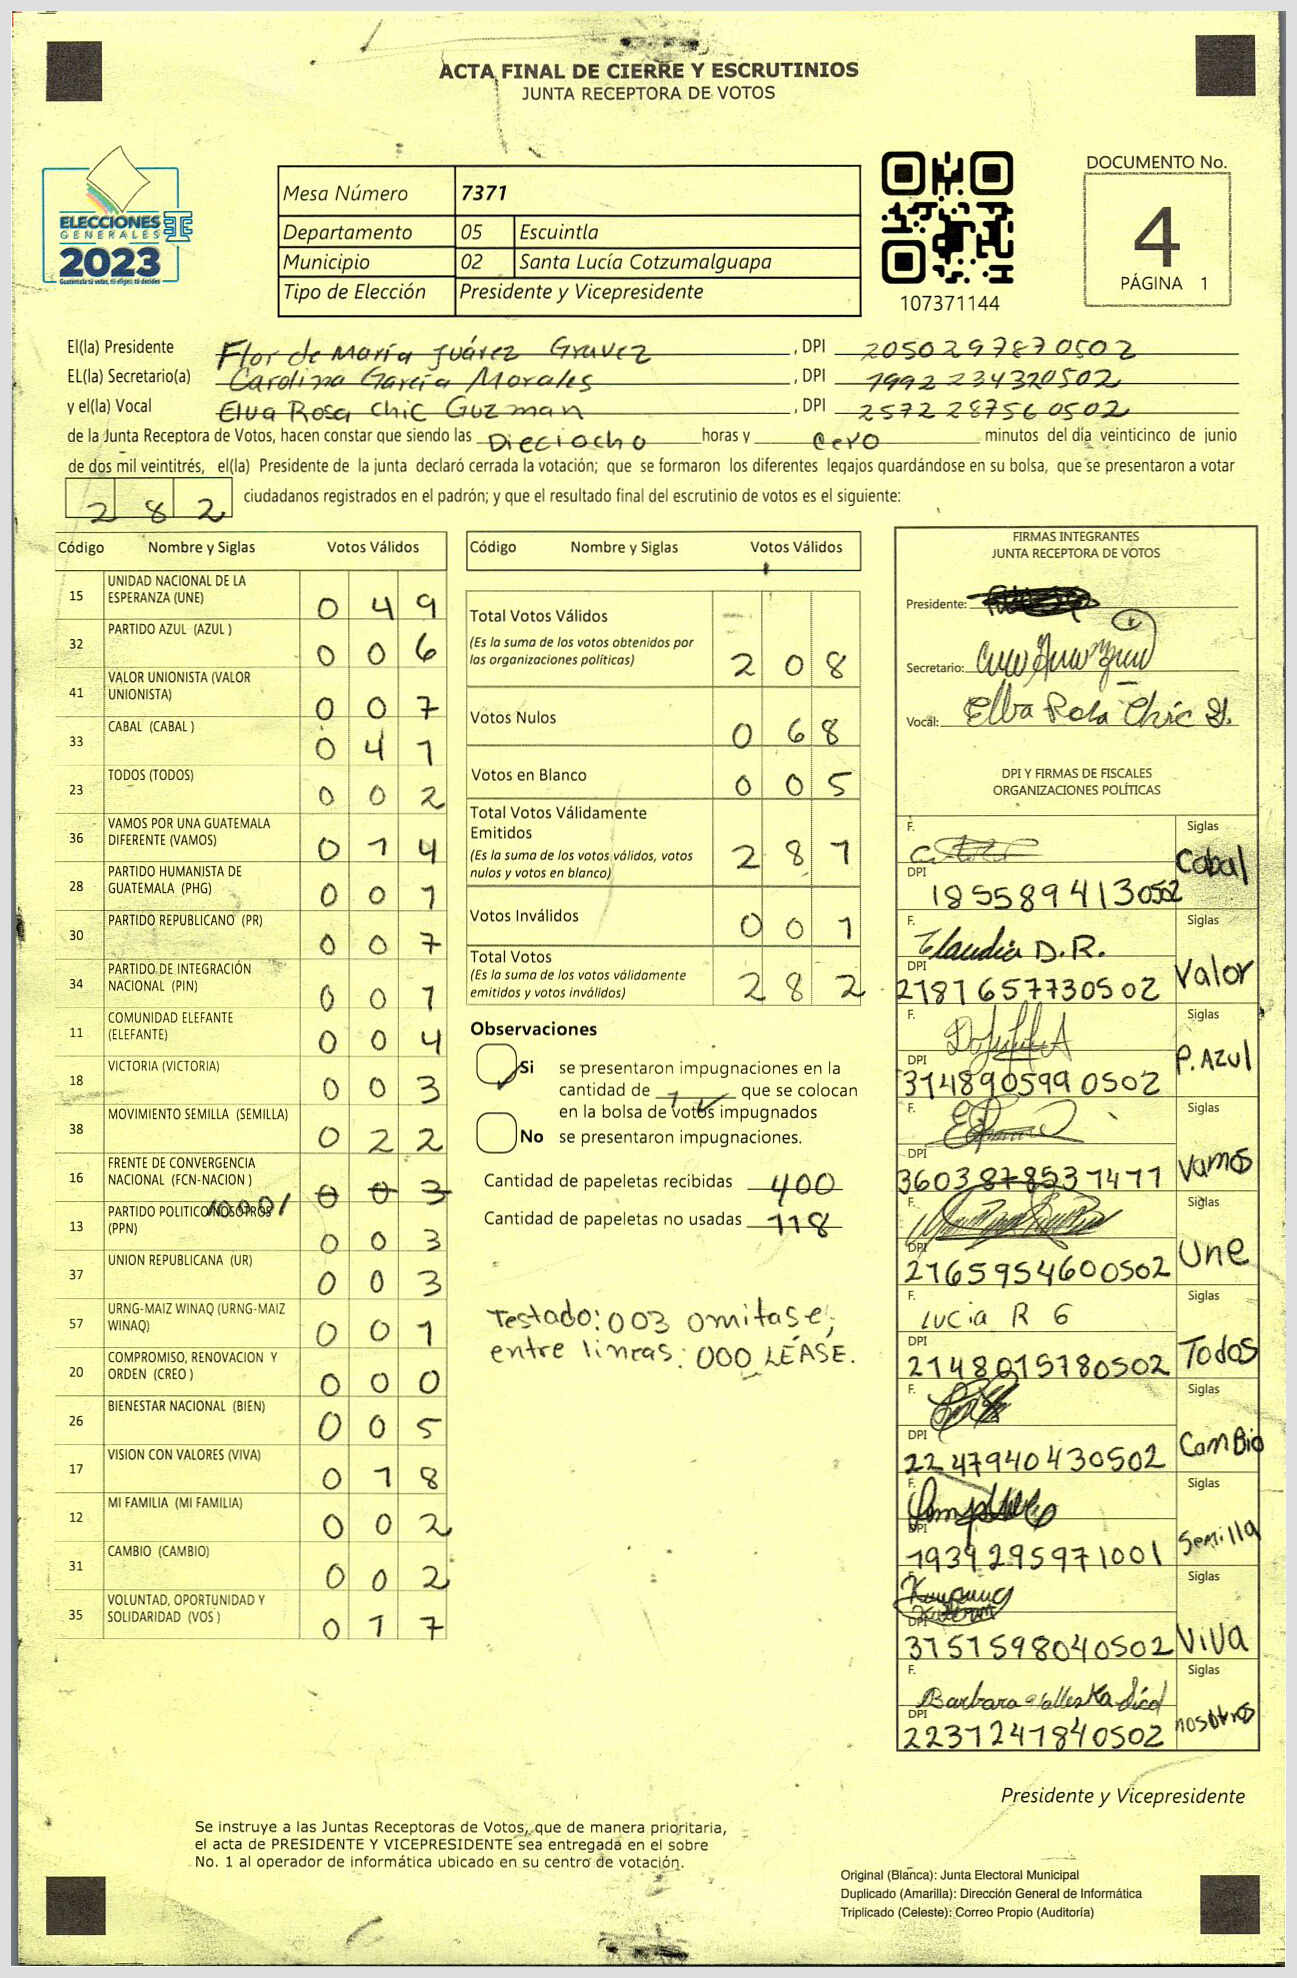 ACTA FINAL DE CIERRE Y ESCRUTINIOS
JUNTA RECEPTORA DE VOTOS
ELECCIONES
GENERALES
2023
Guatemala tú votas, tú eliges, tú decides
Mesa Número 7371
Departamento 05 Escuintla
Municipio 02 Santa Lucía Cotzumalguapa
Tipo de Elección Presidente y Vicepresidente
107371144
DOCUMENTO No.
4
PÁGINA 1
El(la) Presidente Flor de María Juárez Gravez , DPI 2050297870502
EL(la) Secretario(a) Carolina García Morales , DPI 1992234320502
y el(la) Vocal Elva Rosa Chic Guzman , DPI 2572287560502
de la Junta Receptora de Votos, hacen constar que siendo las Dieciocho horas y cero minutos del día veinticinco de junio
de dos mil veintitrés, el(la) Presidente de la junta declaró cerrada la votación; que se formaron los diferentes legajos quardándose en su bolsa, que se presentaron a votar
282 ciudadanos registrados en el padrón; y que el resultado final del escrutinio de votos es el siguiente:
Código Nombre y Siglas Votos Válidos
15 UNIDAD NACIONAL DE LA ESPERANZA (UNE) 049
32 PARTIDO AZUL (AZUL ) 006
41 VALOR UNIONISTA (VALOR UNIONISTA) 007
33 CABAL (CABAL ) 041
23 TODOS (TODOS) 002
36 VAMOS POR UNA GUATEMALA DIFERENTE (VAMOS) 014
28 PARTIDO HUMANISTA DE GUATEMALA (PHG) 001
30 PARTIDO REPUBLICANO (PR) 007
34 PARTIDO DE INTEGRACIÓN NACIONAL (PIN) 001
11 COMUNIDAD ELEFANTE (ELEFANTE) 004
18 VICTORIA (VICTORIA) 003
38 MOVIMIENTO SEMILLA (SEMILLA) 022
16 FRENTE DE CONVERGENCIA NACIONAL (FCN-NACION ) 003
/000/
13 PARTIDO POLITICO NOSOTROS (PPN) 003
37 UNION REPUBLICANA (UR) 003
57 URNG-MAIZ WINAQ (URNG-MAIZ WINAQ) 001
20 COMPROMISO, RENOVACION Y ORDEN (CREO ) 000
26 BIENESTAR NACIONAL (BIEN) 005
17 VISION CON VALORES (VIVA) 018
12 MI FAMILIA (MI FAMILIA) 002
31 CAMBIO (CAMBIO) 002
35 VOLUNTAD, OPORTUNIDAD Y SOLIDARIDAD (VOS ) 017
Código Nombre y Siglas Votos Válidos
Total Votos Válidos
(Es la suma de los votos obtenidos por
las organizaciones políticas) 208
Votos Nulos 068
Votos en Blanco 005
Total Votos Válidamente
Emitidos
(Es la suma de los votos válidos, votos
nulos y votos en blanco) 281
Votos Inválidos 001
Total Votos
(Es la suma de los votos válidamente
emitidos y votos inválidos) 282
Observaciones
Si se presentaron impugnaciones en la
cantidad de 1 que se colocan
en la bolsa de votos impugnados
No se presentaron impugnaciones.
Cantidad de papeletas recibidas 400
Cantidad de papeletas no usadas 118
Testado: 003 omitase,
entre lineas: 000 LÉASE.
FIRMAS INTEGRANTES
JUNTA RECEPTORA DE VOTOS
Presidente:
Secretario:
Vocal: Elba Rosa Chic G.
DPI Y FIRMAS DE FISCALES
ORGANIZACIONES POLÍTICAS
F. Siglas
Cabal
DPI
1855894130502
F. Siglas
Claudia D.R.
Valor
DPI
2181657730502
F. Siglas
P. AZUL
DPI
3148905990502
F. Siglas
Vamos
DPI
3603878531477
F. Siglas
Une
DPI
2765954600502
F. Siglas
Lucia R G
Todos
DPI
2148015780502
F. Siglas
Cambio
DPI
2247940430502
F. Siglas
Semilla
DPI
1939295971001
F. Siglas
Viva
DPI
3151598040502
F. Siglas
Barbara
nosotros
DPI
2231241840502
Presidente y Vicepresidente
Se instruye a las Juntas Receptoras de Votos, que de manera prioritaria,
el acta de PRESIDENTE Y VICEPRESIDENTE sea entregada en el sobre
No. 1 al operador de informática ubicado en su centro de votación.
Original (Blanca): Junta Electoral Municipal
Duplicado (Amarilla): Dirección General de Informática
Triplicado (Celeste): Correo Propio (Auditoría)